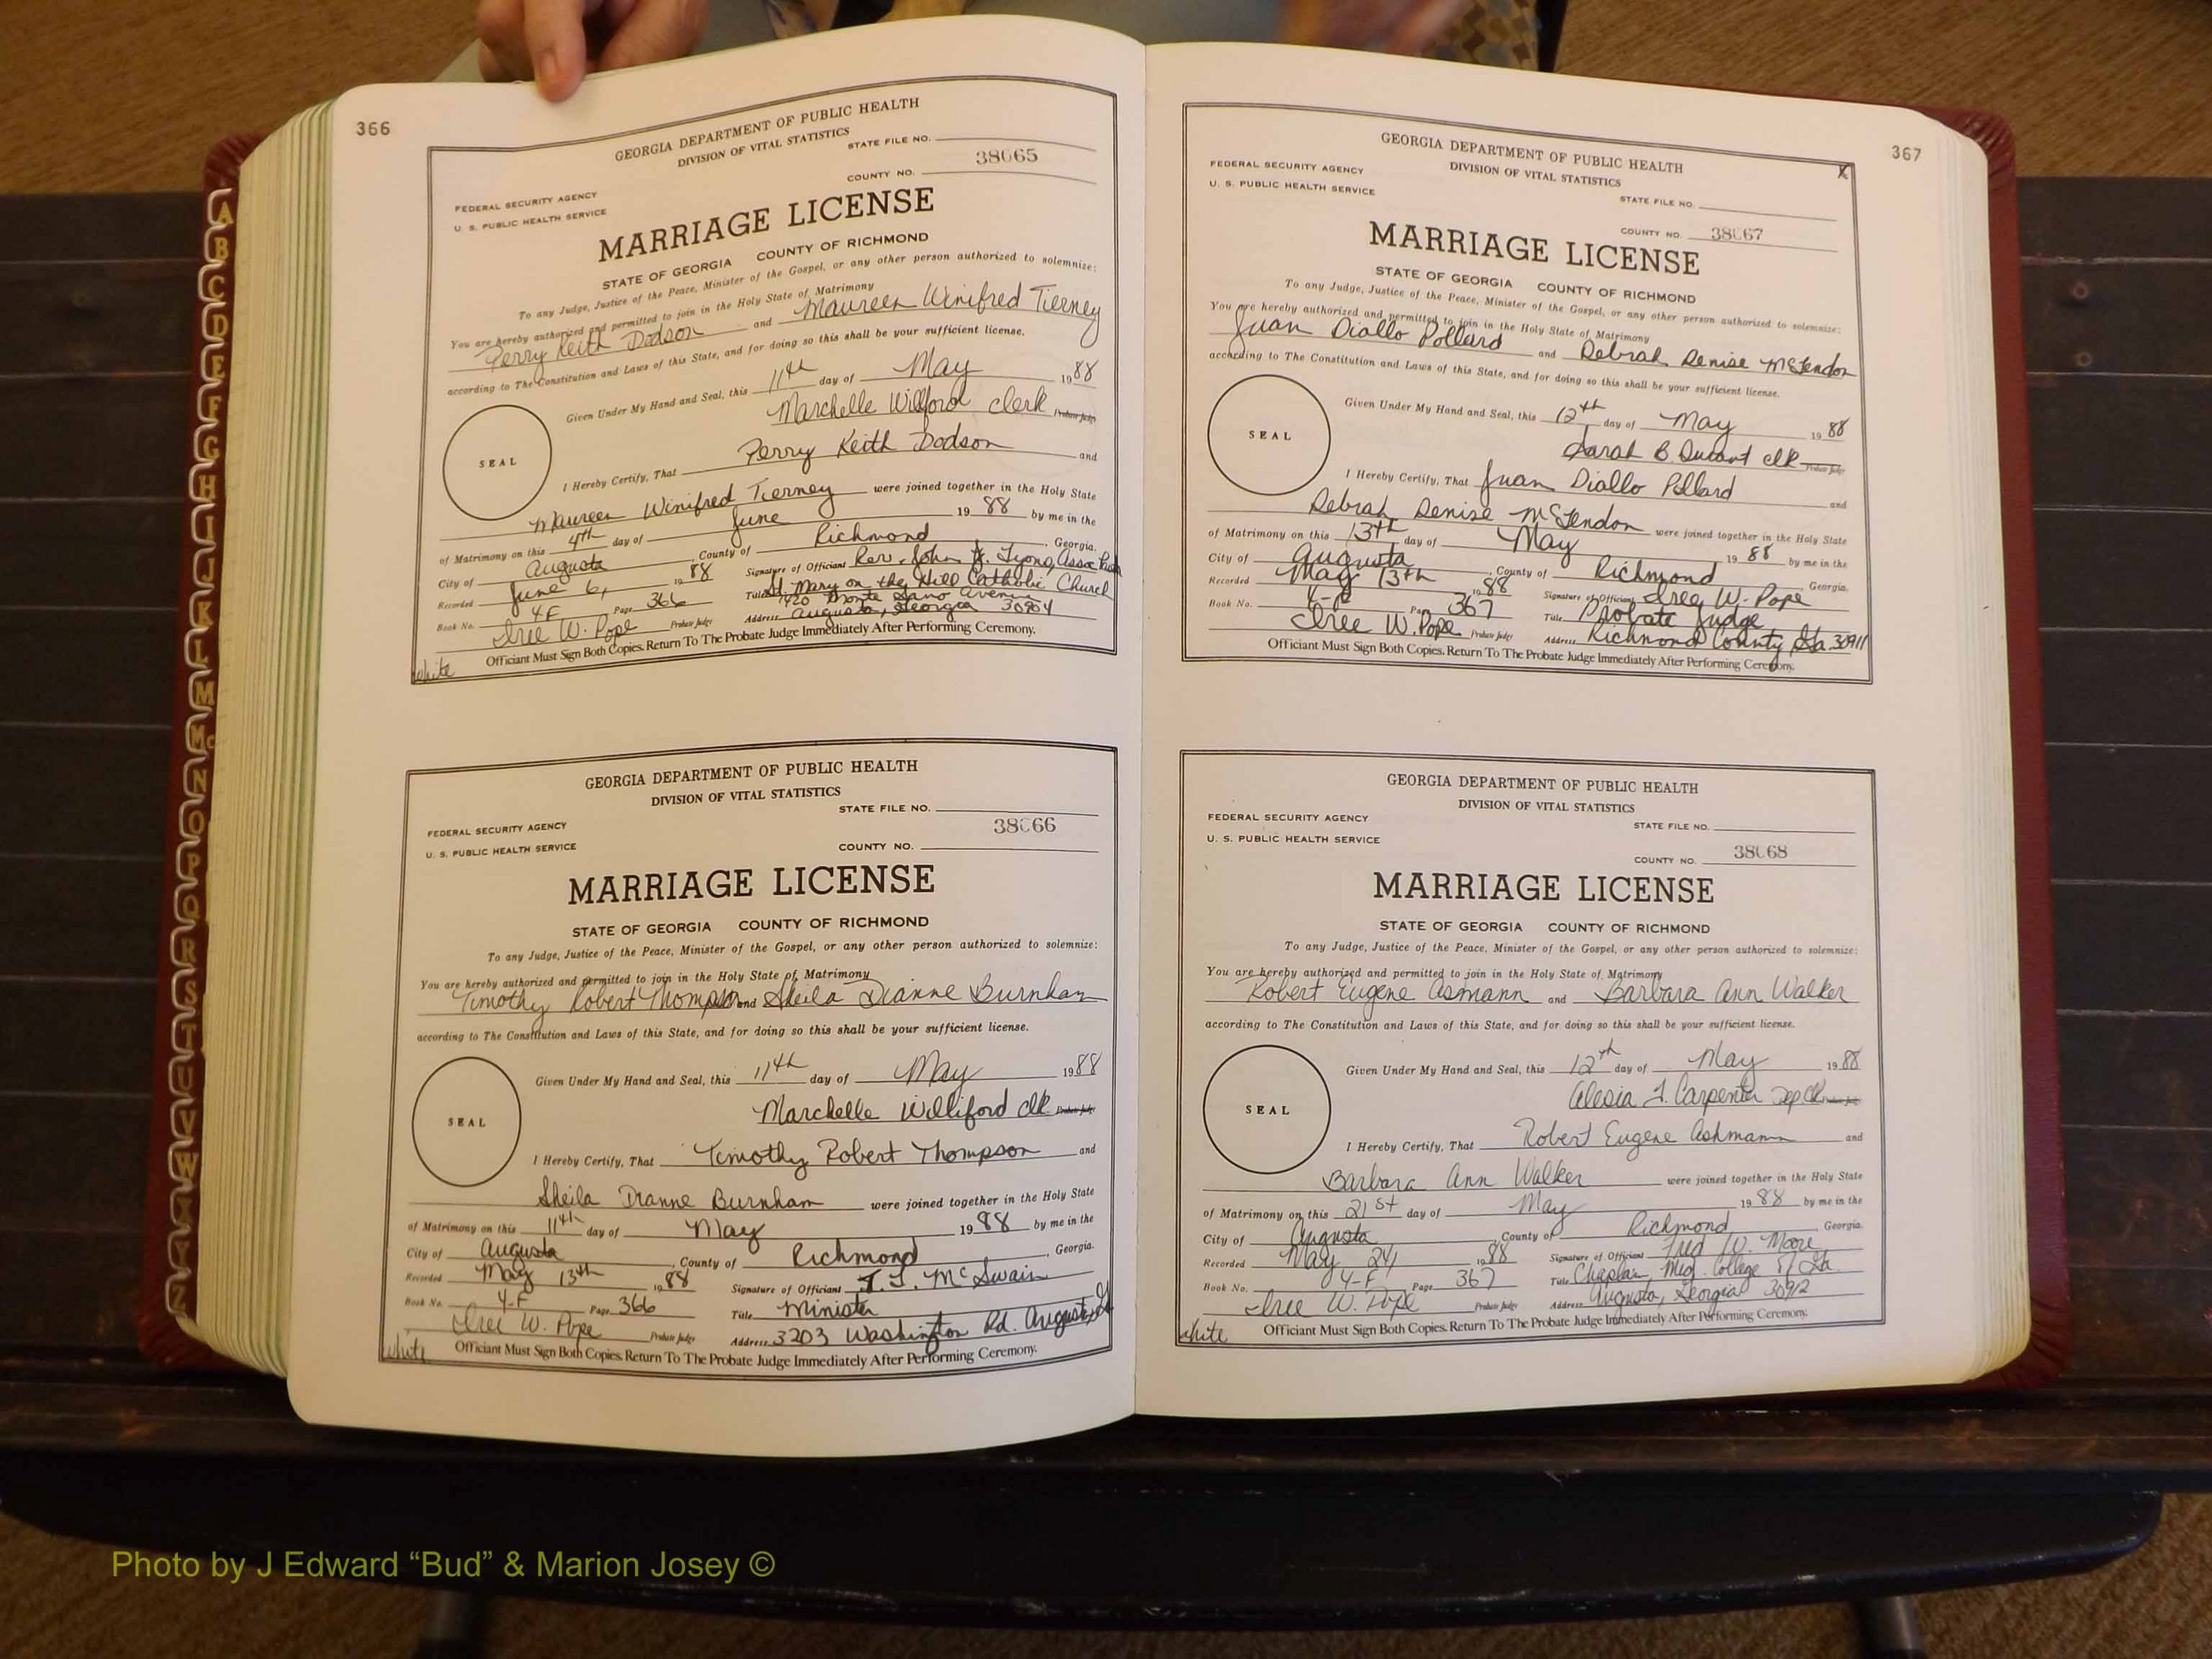 366
GEORGIA DEPARTMENT OF PUBLIC HEALTH
DIVISION OF VITAL STATISTICS
STATE FILE NO.
38065
COUNTY NO.
FEDERAL SECURITY AGENCY
U. S. PUBLIC HEALTH SERVICE
MARRIAGE LICENSE
STATE OF GEORGIA COUNTY OF RICHMOND
To any Judge, Justice of the Peace, Minister of the Gospel, or any other person authorized to solemnize:
You are hereby authorized and permitted to join in the Holy State of Matrimony
Perry Keith Dodson and Maureen Winifred Tierney
according to The Constitution and Laws of this State, and for doing so this shall be your sufficient license.
Given Under My Hand and Seal, this 11th day of May 1988
Marchelle Williford clerk Probate Judge
SEAL
I Hereby Certify, That Perry Keith Dodson and
Maureen Winifred Tierney were joined together in the Holy State
of Matrimony on this 4th day of June 1988 by me in the
City of Augusta, County of Richmond, Georgia.
Recorded June 6, 1988 Signature of Officiant Rev. John J. Lyons, Assoc Pastor
Book No. 4F Page 366 Title St. Mary on the Hill Catholic Church
1420 Monte Sano Avenue
Iree W. Pope Probate Judge Address Augusta, Georgia 30904
Officiant Must Sign Both Copies. Return To The Probate Judge Immediately After Performing Ceremony.
White
GEORGIA DEPARTMENT OF PUBLIC HEALTH
DIVISION OF VITAL STATISTICS
STATE FILE NO.
38066
FEDERAL SECURITY AGENCY
U. S. PUBLIC HEALTH SERVICE
COUNTY NO.
MARRIAGE LICENSE
STATE OF GEORGIA COUNTY OF RICHMOND
To any Judge, Justice of the Peace, Minister of the Gospel, or any other person authorized to solemnize:
You are hereby authorized and permitted to join in the Holy State of Matrimony
Timothy Robert Thompson and Sheila Dianne Burnham
according to The Constitution and Laws of this State, and for doing so this shall be your sufficient license.
Given Under My Hand and Seal, this 11th day of May 1988
Marchelle Williford clk. Probate Judge
SEAL
I Hereby Certify, That Timothy Robert Thompson and
Sheila Dianne Burnham were joined together in the Holy State
of Matrimony on this 11th day of May 1988 by me in the
City of Augusta, County of Richmond, Georgia.
Recorded May 13th 1988 Signature of Officiant J. J. McSwain
Book No. 4-F Page 366 Title Minister
Iree W. Pope Probate Judge Address 3203 Washington Rd. Augusta, Ga
Officiant Must Sign Both Copies. Return To The Probate Judge Immediately After Performing Ceremony.
White
367
GEORGIA DEPARTMENT OF PUBLIC HEALTH
DIVISION OF VITAL STATISTICS
X
FEDERAL SECURITY AGENCY
U. S. PUBLIC HEALTH SERVICE
STATE FILE NO.
COUNTY NO. 38067
MARRIAGE LICENSE
STATE OF GEORGIA COUNTY OF RICHMOND
To any Judge, Justice of the Peace, Minister of the Gospel, or any other person authorized to solemnize:
You are hereby authorized and permitted to join in the Holy State of Matrimony
Juan Diallo Pollard and Debrah Denise McLendon
according to The Constitution and Laws of this State, and for doing so this shall be your sufficient license.
Given Under My Hand and Seal, this 12th day of May 1988
Sarah B. Durant clk Probate Judge
SEAL
I Hereby Certify, That Juan Diallo Pollard and
Debrah Denise McLendon were joined together in the Holy State
of Matrimony on this 13th day of May 1988 by me in the
City of Augusta, County of Richmond, Georgia.
Recorded May 13th 1988 Signature of Officiant Iree W. Pope
Book No. 4-F Page 367 Title Probate Judge
Iree W. Pope Probate Judge Address Richmond County, Ga. 30911
Officiant Must Sign Both Copies. Return To The Probate Judge Immediately After Performing Ceremony.
GEORGIA DEPARTMENT OF PUBLIC HEALTH
DIVISION OF VITAL STATISTICS
FEDERAL SECURITY AGENCY
STATE FILE NO.
U. S. PUBLIC HEALTH SERVICE
COUNTY NO. 38068
MARRIAGE LICENSE
STATE OF GEORGIA COUNTY OF RICHMOND
To any Judge, Justice of the Peace, Minister of the Gospel, or any other person authorized to solemnize:
You are hereby authorized and permitted to join in the Holy State of Matrimony
Robert Eugene Asmann and Barbara Ann Walker
according to The Constitution and Laws of this State, and for doing so this shall be your sufficient license.
Given Under My Hand and Seal, this 12th day of May 1988
Alesia J. Carpenter Dep Clk Probate Judge
SEAL
I Hereby Certify, That Robert Eugene Ashmann and
Barbara Ann Walker were joined together in the Holy State
of Matrimony on this 21st day of May 1988 by me in the
City of Augusta, County of Richmond, Georgia.
Recorded May 24, 1988 Signature of Officiant Fred W. Moore
Book No. 4-F Page 367 Title Chaplain, Med. College of Ga.
Iree W. Pope Probate Judge Address Augusta, Georgia 30912
Officiant Must Sign Both Copies. Return To The Probate Judge Immediately After Performing Ceremony.
White
A
B
C
D
E
F
G
H
I
J
K
L
M
Mc
N
O
P
Q
R
S
T
U
V
W
X
Y
Z
Photo by J Edward “Bud” & Marion Josey ©